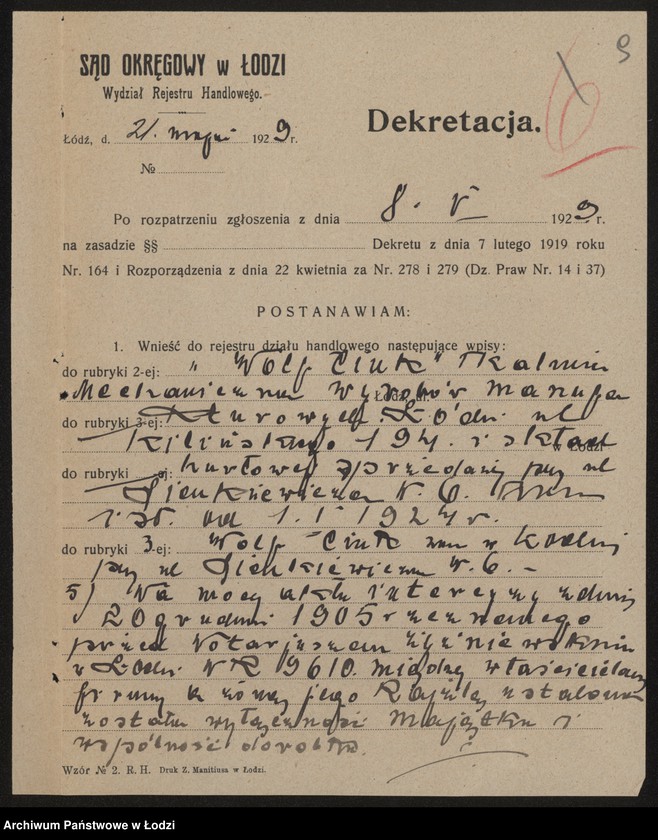 9
6
SĄD OKRĘGOWY w ŁODZI
Wydział Rejestru Handlowego.
Łódź, d. 21. maja 1929 r.
№
Dekretacja.
Po rozpatrzeniu zgłoszenia z dnia 8. V 1929 r.
na zasadzie §§ Dekretu z dnia 7 lutego 1919 roku
Nr. 164 i Rozporządzenia z dnia 22 kwietnia za Nr. 278 i 279 (Dz. Praw Nr. 14 i 37)
POSTANAWIAM:
1. Wnieść do rejestru działu handlowego następujące wpisy:
do rubryki 2-ej: „Wolf Cink" Tkalnia
Mechaniczna Wyrobów Manufa
do rubryki 3-ej: kturowych. Łódź ul
Kilińskiego 194. i skład w Łodzi
do rubryki ej: hurtowej sprzedaży przy ul
Sienkiewicza N. 6. Firma
ist. od 1. I 1924 r.
do rubryki 3-ej: Wolf Cink zam w Łodzi
przy ul Sienkiewicza N. 6. –
5) Na mocy aktu intercyzy z dnia
20 grudnia 1905 r zeznanego
przed Notarjuszem
w Łodzi NR 9610. między właścicielem
firmy a żoną jego Rajzlą ustalona
została wyłączność majątku i
wspólność dorobku.
Wzór № 2. R. H. Druk Z. Manitiusa w Łodzi.
Archiwum Państwowe w Łodzi